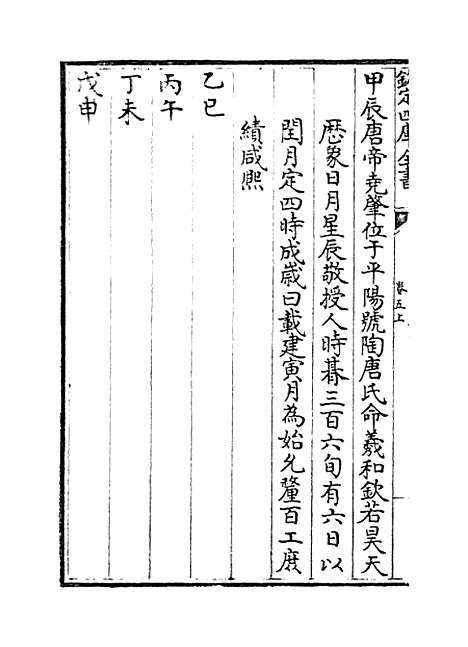 欽定四庫全書
卷五上
甲辰唐帝堯肇位于平陽號陶唐氏命羲和欽若昊天
歴象日月星辰敬授人時朞三百六旬有六日以
閏月定四時成歲曰載建寅月為始允釐百工庻
績咸熙
乙巳
丙午
丁未
戊申